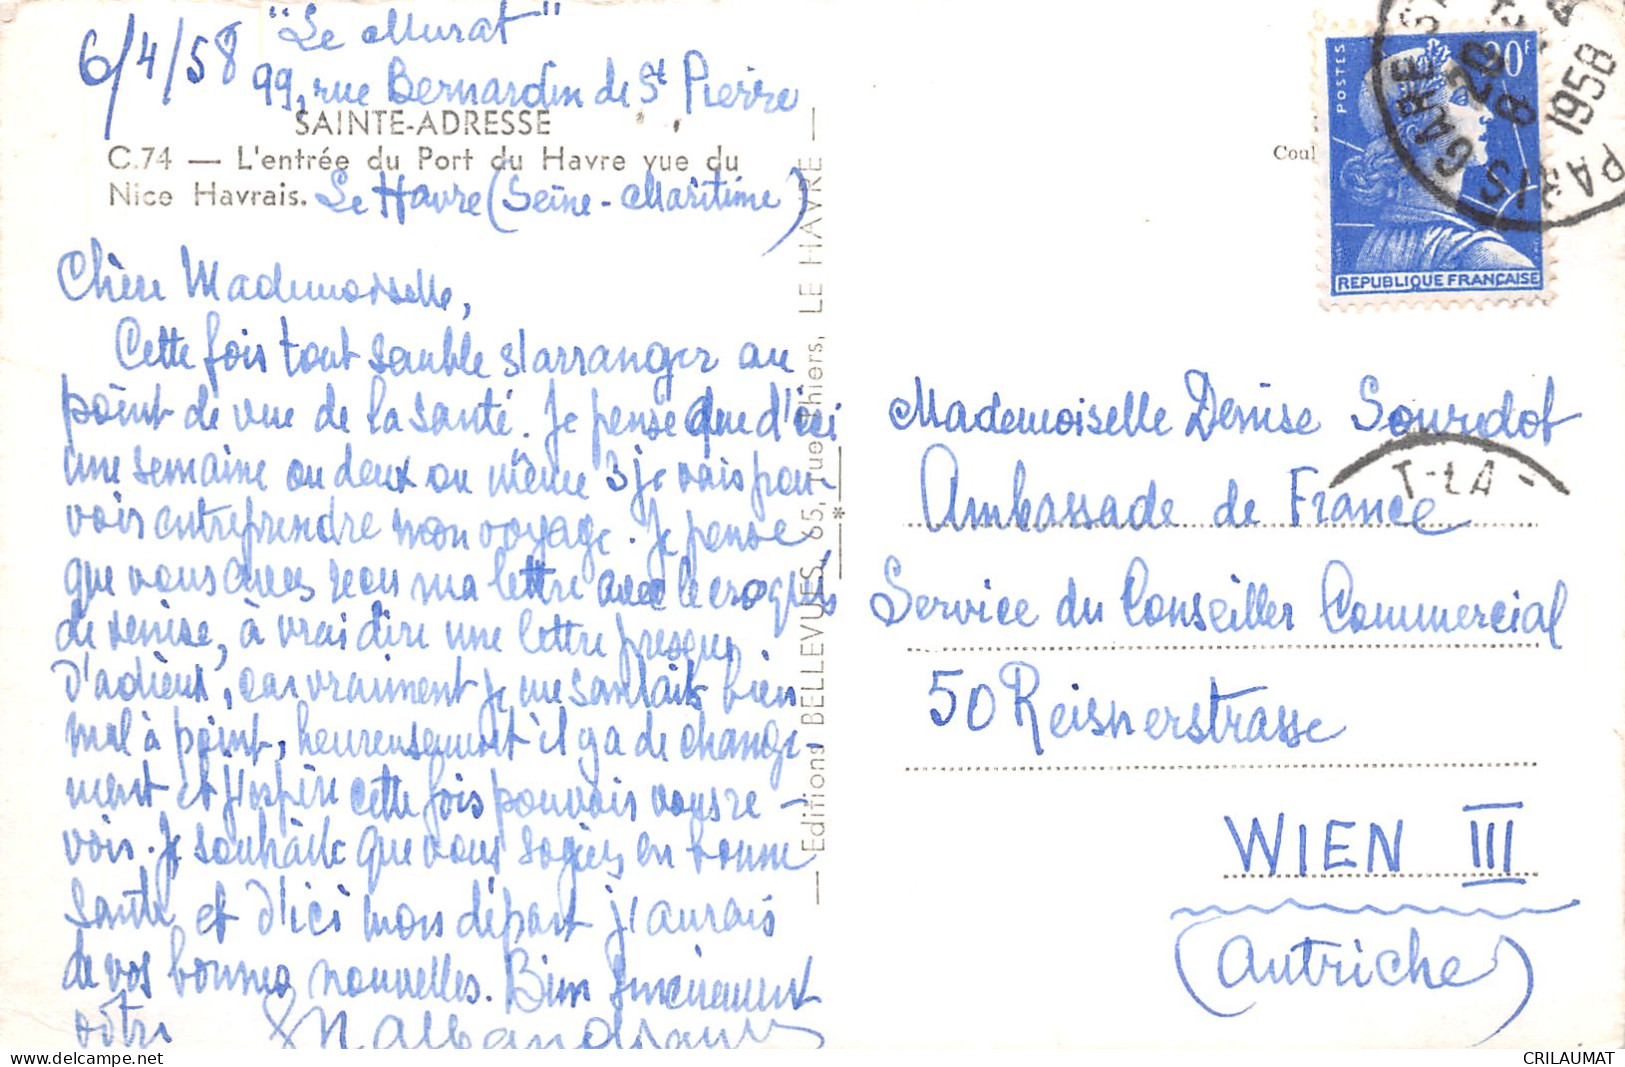 6/4/58 "Le Murat"
99, rue Bernardin de St Pierre
SAINTE-ADRESSE
C.74 — L'entrée du Port du Havre vue du
Nice Havrais. Le Havre (Seine-Maritime)
Chère Mademoiselle,
Cette fois tout semble s'arranger au
point de vue de la santé. Je pense que d'ici
une semaine ou deux ou même 3 je vais pou-
voir entreprendre mon voyage. Je pense
que vous avez reçu ma lettre avec le croquis
de remise, à vrai dire une lettre presque
d'adieux, car vraiment je me sentais bien
mal à point, heureusement il y a de change-
ment et j'espère cette fois pouvoir vous re-
voir. Je souhaite que vous soyiez en bonne
santé et d'ici mon départ j'aurais
de vos bonnes nouvelles. Bien sincèrement
vôtre
— Editions BELLEVUES, 65, rue Thiers, LE HAVRE —
*
Coul
POSTES
20F
REPUBLIQUE FRANÇAISE
PARIS GARE ST
PARIS
20
8
1958
T-LA-
Mademoiselle Denise Sourdot
Ambassade de France
Service du Conseiller Commercial
50 Reisnerstrasse
WIEN III
(Autriche)
CRILAUMAT